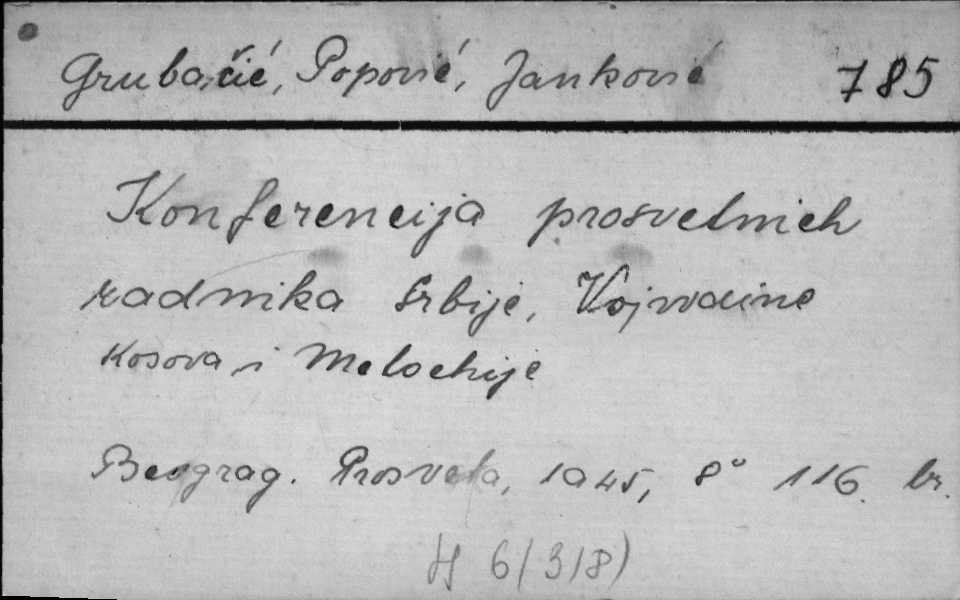 Grubačić, Popović, Janković 785
Konferencija prosvetnich
radnika Srbije, Vojvodine
Kosova i Metochije
Beograg. Prosveta, 1945, 8° 116. br.
H 6/3/8)